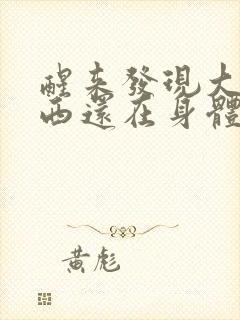 醒來發現大
西還在身體
黃彪